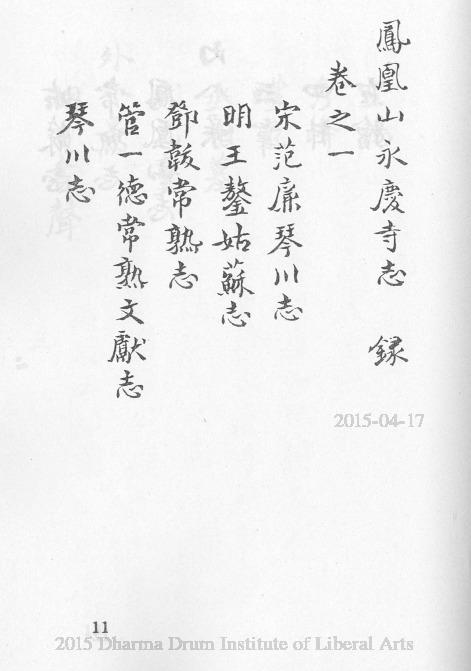 鳳凰山永慶寺志 録
卷之一
宋范廉琴川志
明王鏊姑蘇志
鄧韍常熟志
管一德常熟文獻志
琴川志
2015-04-17
11
2015 Dharma Drum Institute of Liberal Arts